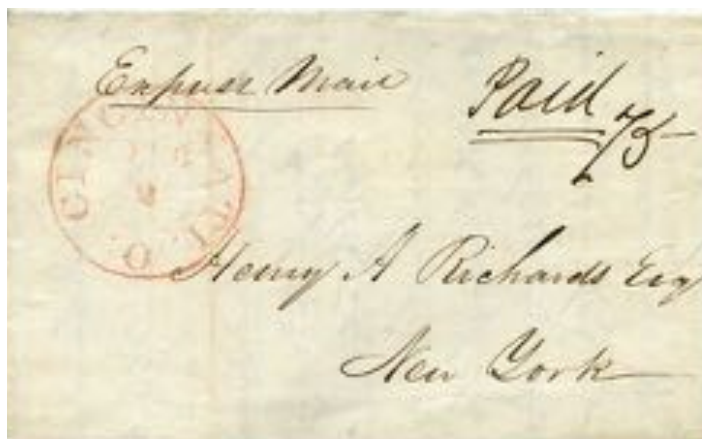 Express Mail
Paid 75
CINCINNATI. O.
Henry A Richards Esq
New York